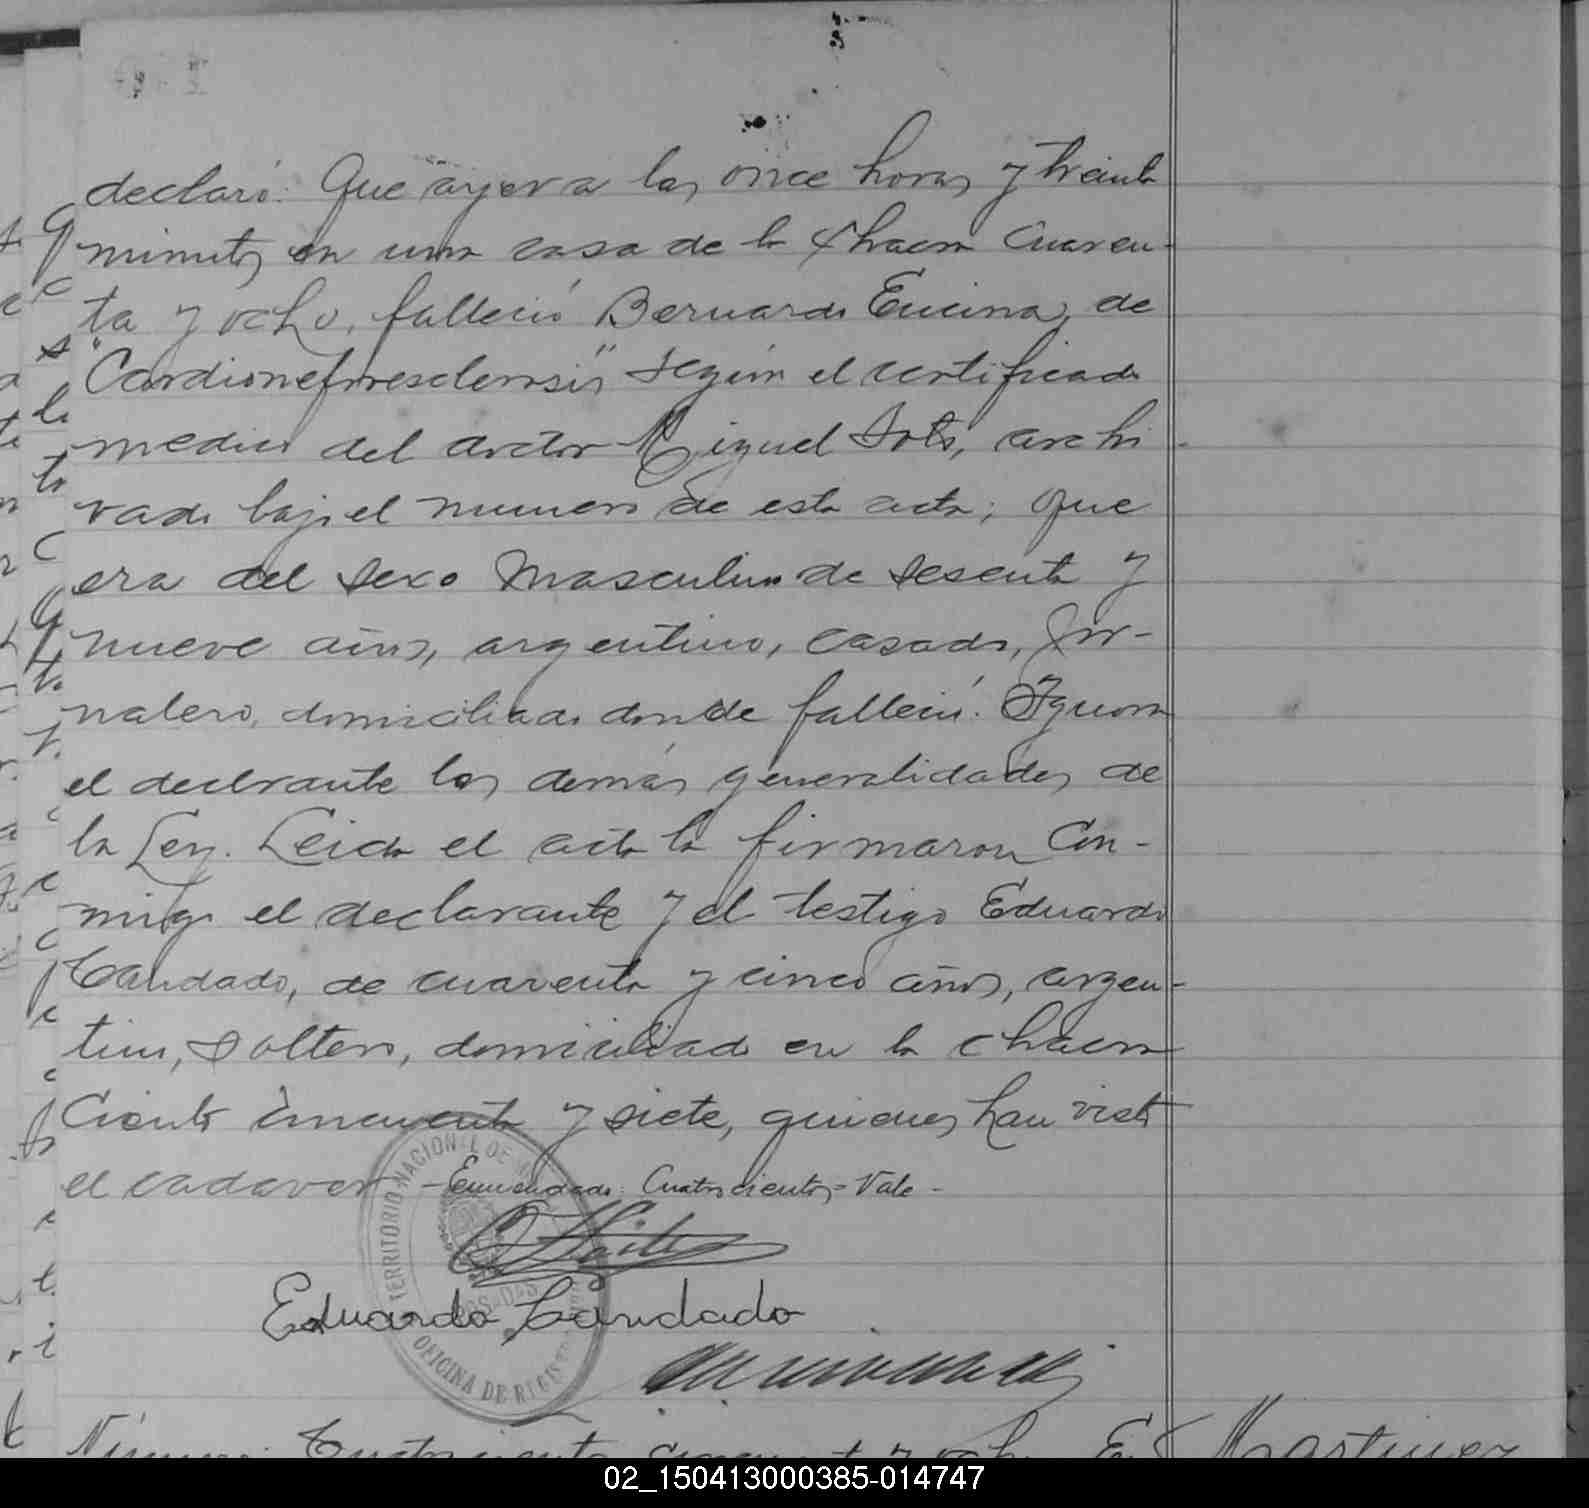 declaró: Que ayer a las once horas y treinta
minutos en una casa de la chacra cuaren-
ta y ocho, falleció Bernardo Encina, de
"Cardionefroesclerosis" según el certificado
medico del doctor Miguel Soto, archi-
vado bajo el numero de esta acta; que
era del sexo masculino de sesenta y
nueve años, argentino, casado, jor-
nalero, domiciliado donde falleció. Ignora
el declrante las demás generalidades de
la Ley. Leida el acta la firmaron con-
migo el declarante y el testigo Eduardo
Candado, de cuarenta y cinco años, argen-
tino, soltero, domiciliado en la chacra
ciento cincuenta y siete, quienes han visto
el cadaver - Enmendado: Cuatrocientos = Vale -
Eduardo Candado
TERRITORIO NACIONAL DE
OFICINA DE REGIS
Número: Cuatrocientos y ocho
Martinez
02_150413000385-014747